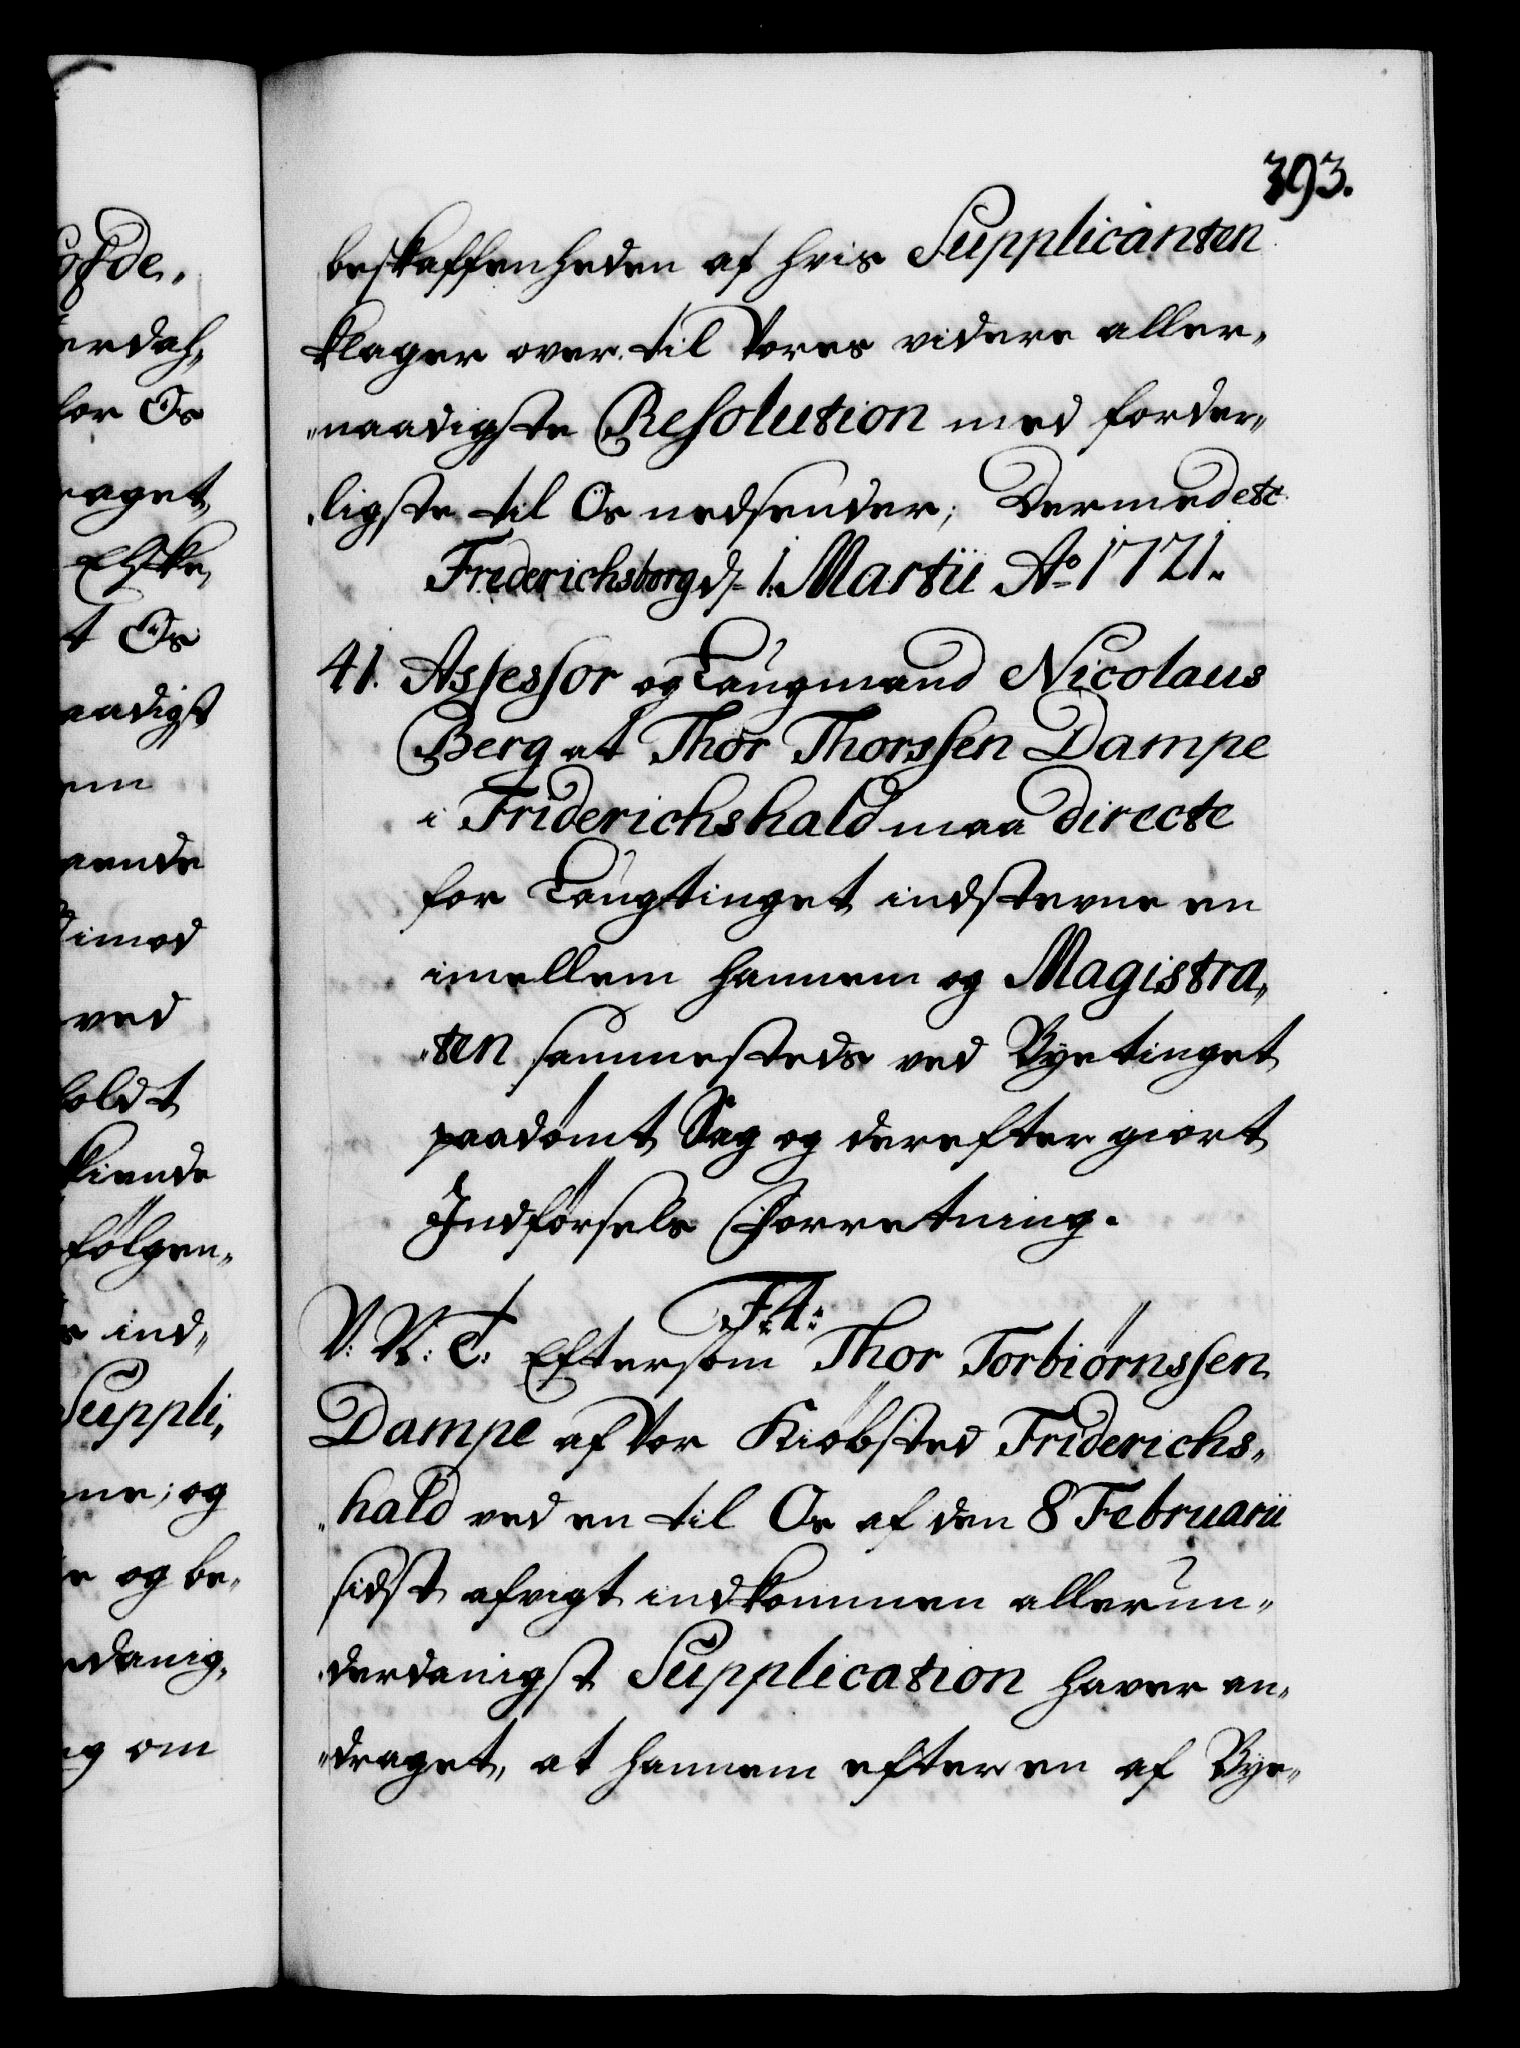 393.
beskaffenheden af hvis Supplicanten
klager over til Vores videre aller„
„naadigste Resolution med forder„
„ligste til Os nedsender; Dermed etc
Frederichsborg d. 1. Martii Ao 1721.
41. Assessor og Laugmand Nicolaus
Berg at Thor Thorssen Dampe
i Friderichshald maa directe
for Laugtinget indstevne en
imellem hannem og Magistra„
„ten sammesteds ved Byetinget
paadømt Sag og derefter giort
Indførsels Forretning.
F. 4:
V: V: C: Eftersom Thor Torbiørnssen
Dampe af Vor Kiøbsted Friderichs„
„hald ved en til Os af den 8 Februarii
sidst afvigt indkommen allerun„
„derdanigst Supplication haver an„
„draget, at hannem efter en af Bye„
ofde„
erdah„
for Os
raget,
Elske,
t Os
aadigst
em
aende
imod
ved
holdt
kiende
følgen„
ind„
Suppli„
ne; og
e og be„
danig„
ng om